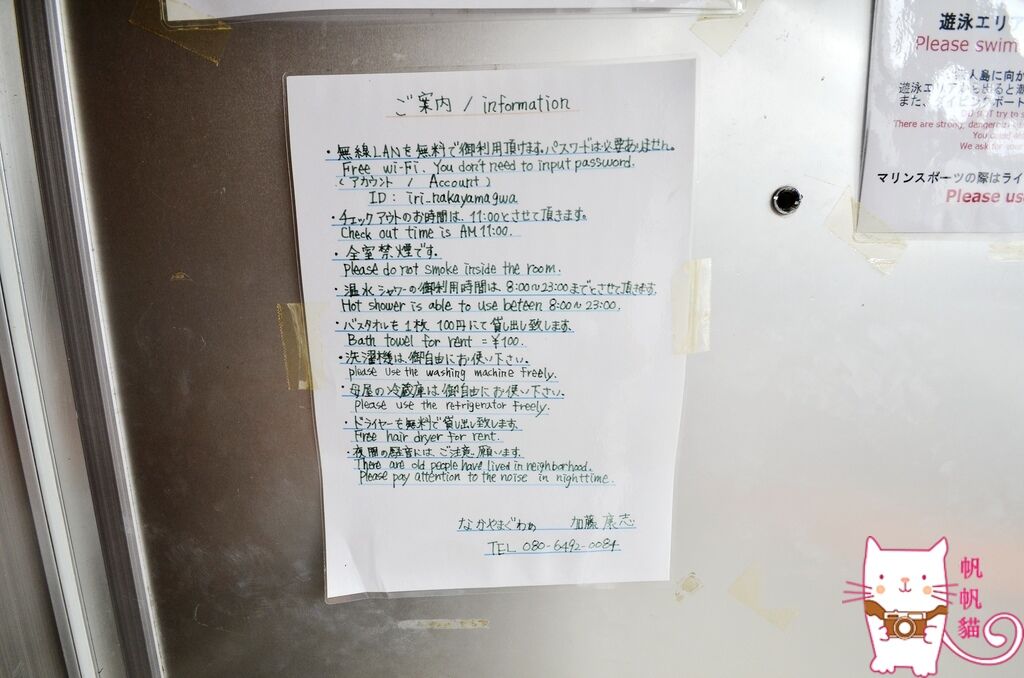 ご案内 / information
・無線LANを無料で御利用頂けます。パスワードは必要ありません。
Free wi-Fi. You don't need to input password.
(アカウント / Account)
ID: iri_nakayamagwa
・チェックアウトのお時間は、11:00とさせて頂きます。
Check out time is AM 11:00.
・全室禁煙です。
Please do not smoke inside the room.
・温水シャワーの御利用時間は 8:00~23:00までとさせて頂きます。
Hot shower is able to use beteen 8:00~23:00.
・バスタオルを1枚 100円にて貸し出し致します。
Bath towel for rent = ¥100.
・洗濯機は、御自由にお使い下さい。
please use the washing machine freely.
・母屋の冷蔵庫は、御自由にお使い下さい。
please use the refrigerator freely.
・ドライヤーを無料で貸し出し致します。
Free hair dryer for rent.
・夜間の騒音には、ご注意願います。
There are old people have lived in neighborhood.
Please pay attention to the noise in nighttime.
なかやまぐわぁ 加藤 康志
TEL 080-6492-0084
遊泳エリア
Please swim
人島に向か
遊泳エリアから出ると潮
また、ダイビングボート
try to
There are strong, dangerous
We ask for your
マリンスポーツの際はライ
Please us
帆帆貓